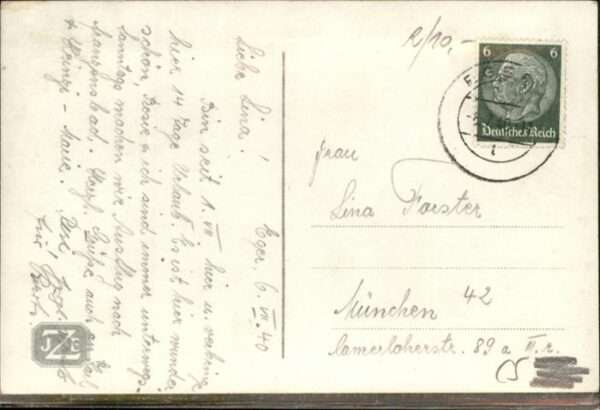 Eger, 6. VII. 40
Liebe Lina!
Bin seit 1. VII. hier u. verbringe
hier 14 Tage Urlaub. Es ist hier wunder
schön, Rosie & ich sind immer unterwegs.
Sonntags machen wir Ausflug nach
Marienbad. Herzl. Grüße auch an Karl
& Heinzi - Marie.
2/10,-
6 6
Deutsches Reich
Frau
Lina Forster
München 42
Camerloherstr. 89 a III. r.
CS
JZC